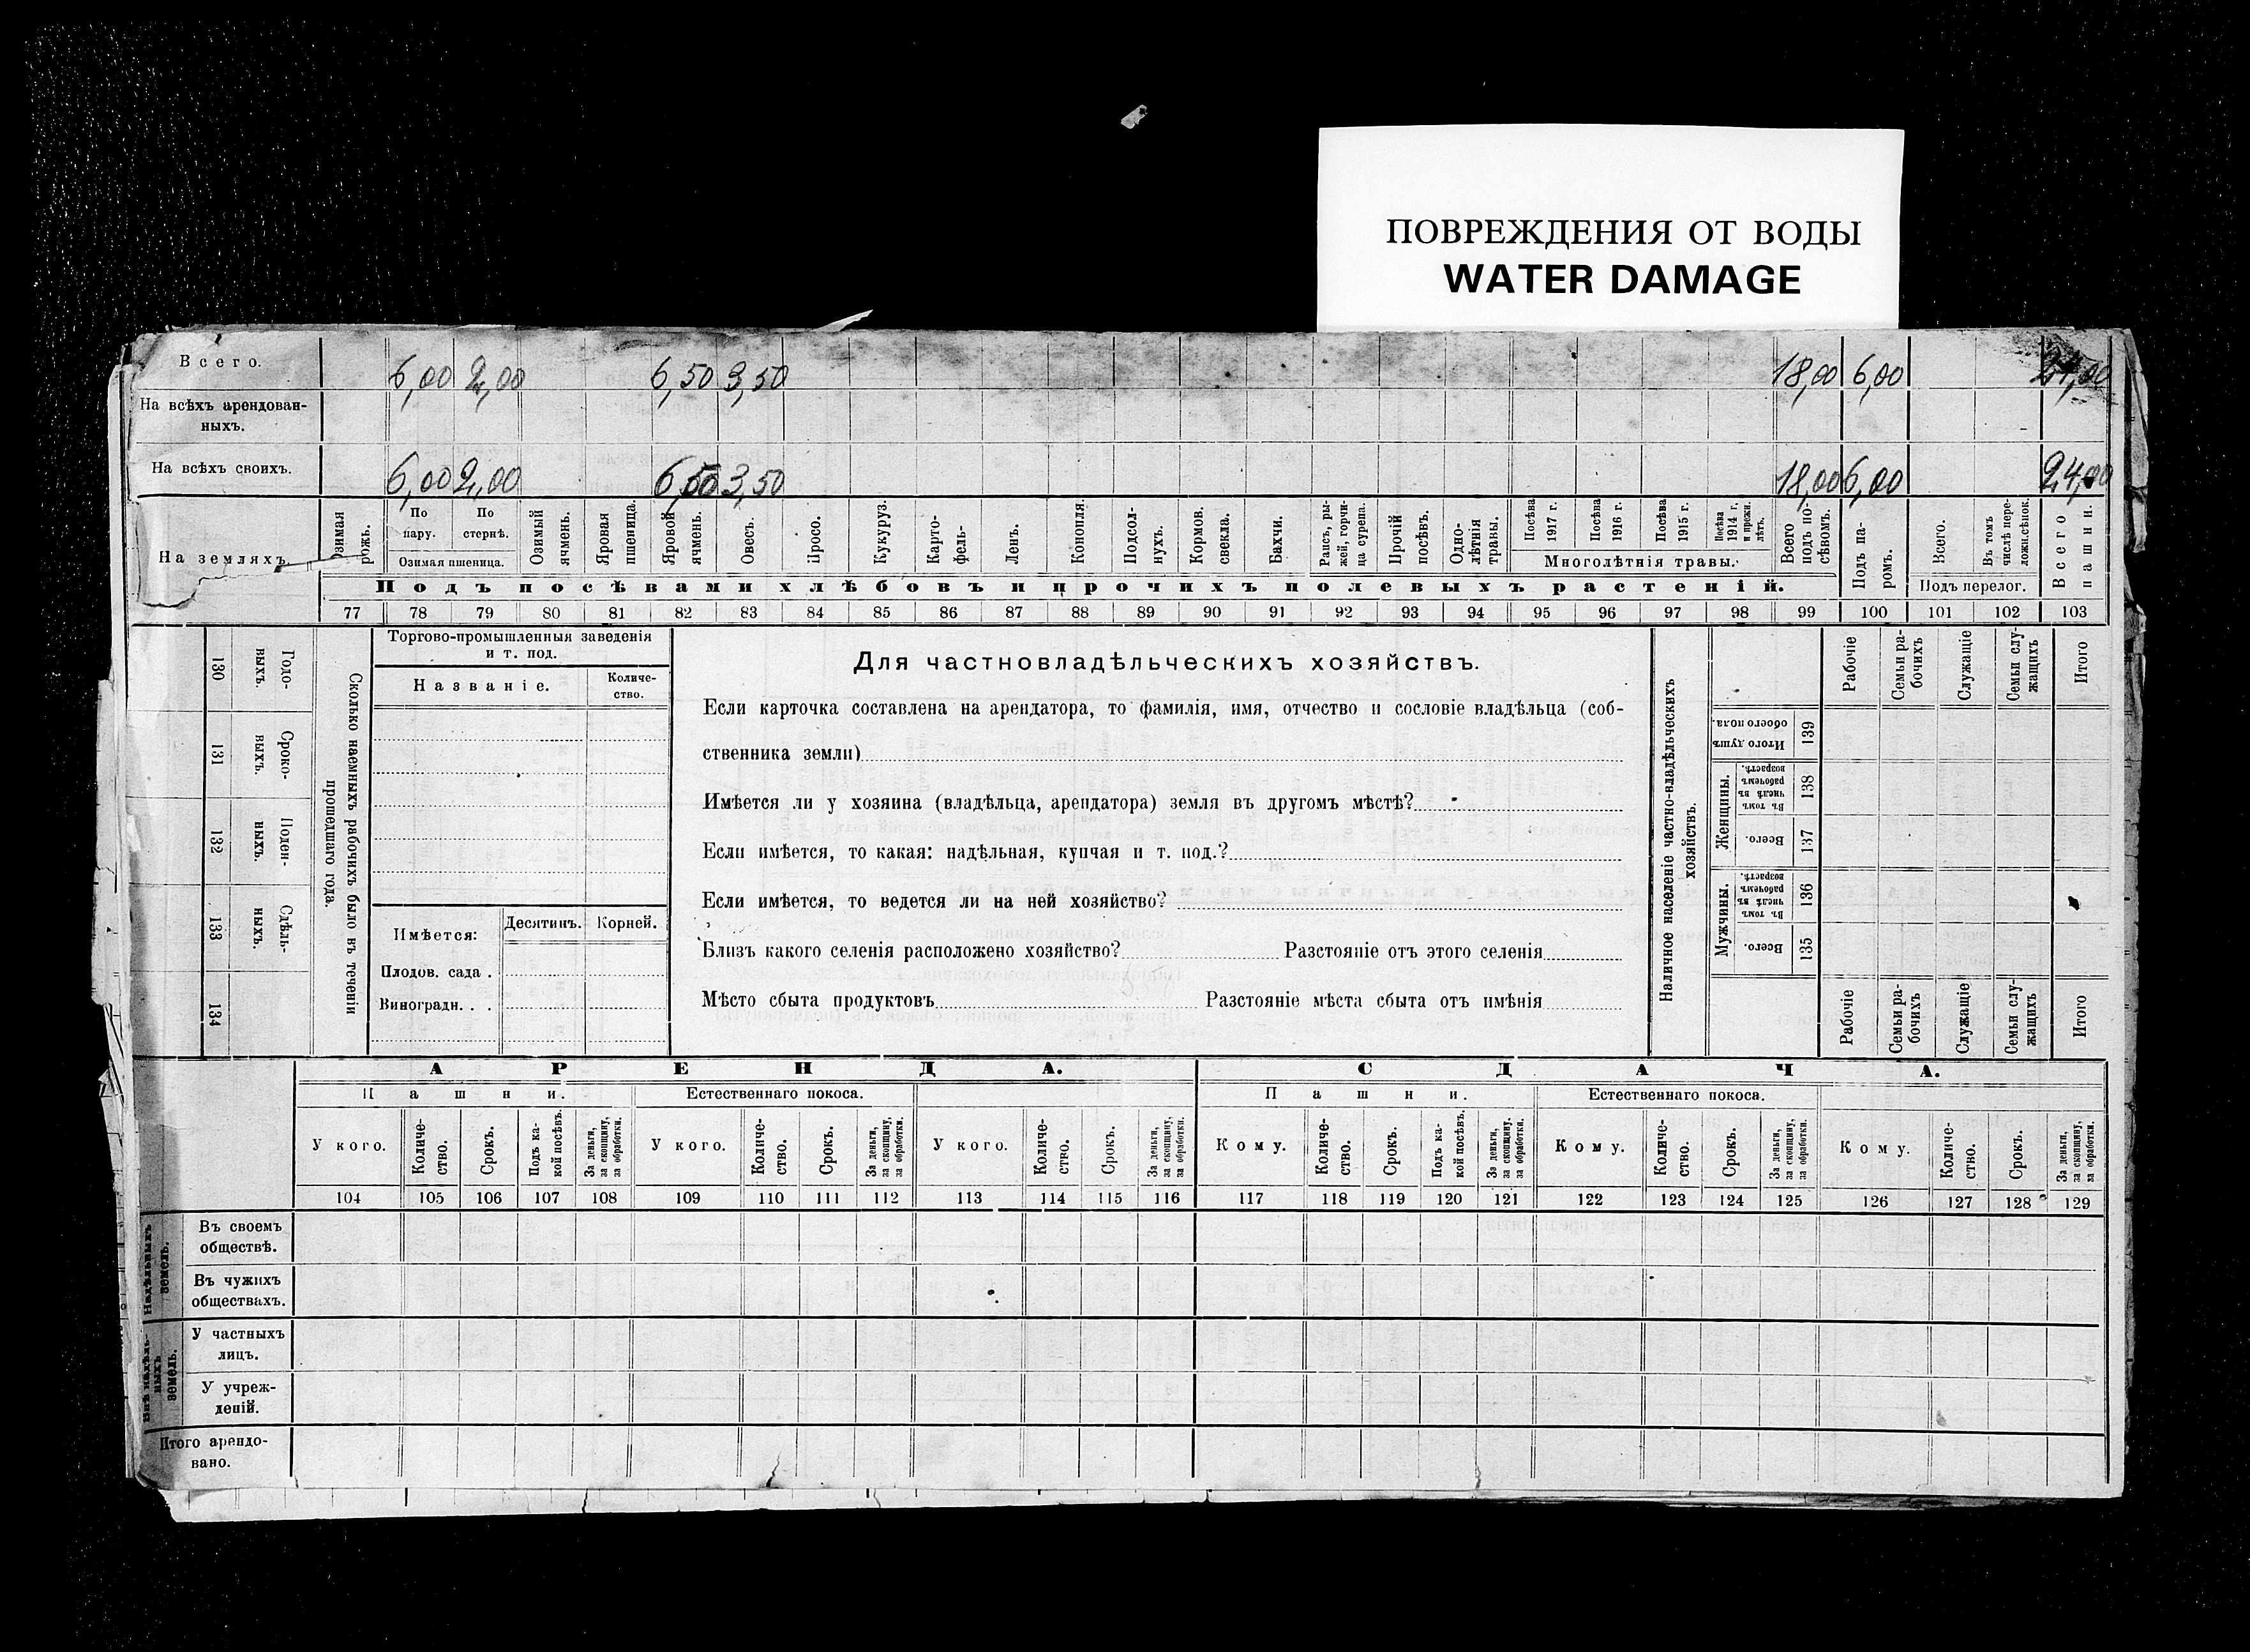 ПОВРЕЖДЕНИЯ ОТ ВОДЫ
WATER DAMAGE
Всего. 6,00 2,00 6,50 3,50 18,00 6,00 24,00
На всѣхъ арендован-
ныхъ.
На всѣхъ своихъ. 6,00 2,00 6,50 3,50 18,00 6,00 24,00
На земляхъ.
Озимая рожь.
По пару.
По стернѣ.
Озимая пшеница.
Озимый ячмень.
Яровая пшеница.
Яровой ячмень.
Овесъ.
Просо.
Кукуруз.
Карто-
фель-
Ленъ.
Конопля.
Подсол-
нухъ.
Кормов.
свекла.
Бахчи.
Рапсъ, ры-
жей, горчи-
ца сурепа.
Прочій
посѣвъ.
Одно-
лѣтнія
травы.
Посѣва
1917 г.
Посѣва
1916 г.
Посѣва
1915 г.
Посѣва
1914 г.
и прежн.
лѣтъ.
Многолѣтнія травы.
Всего
подъ по-
сѣвомъ.
Подъ па-
ромъ.
Всего.
Въ томъ
числѣ пере-
Подъ перелог.
Всего
пашни.
Подъ посѣвами хлѣбовъ и прочихъ полевыхъ растеній.
77 78 79 80 81 82 83 84 85 86 87 88 89 90 91 92 93 94 95 96 97 98 99 100 101 102 103
130 Годо-
выхъ.
131 Сроко-
выхъ.
132 Поден-
ныхъ.
133 Сдѣль-
ныхъ.
134
Сколько наемныхъ рабочихъ было въ теченіи
прошедшаго года.
Торгово-промышленныя заведенія
и т. под.
Названіе.
Количе-
ство.
Имѣется:
Десятинъ. Корней.
Плодов. сада .
Виноградн. . .
Для частновладѣльческихъ хозяйствъ.
Если карточка составлена на арендатора, то фамилія, имя, отчество и сословіе владѣльца (соб-
ственника земли)
Имѣется ли у хозяина (владѣльца, арендатора) земля въ другомъ мѣстѣ?
Если имѣется, то какая: надѣльная, купчая и т. под.?
Если имѣется, то ведется ли на ней хозяйство?
Близъ какого селенія расположено хозяйство? Разстояніе отъ этого селенія
Мѣсто сбыта продуктовъ Разстояніе мѣста сбыта отъ имѣнія
Наличное населеніе частно-владѣльческихъ
хозяйствъ.
Рабочіе
Семьи ра-
бочихъ
Служащіе
Семьи слу-
жащихъ
Итого
Итого душъ
обоего пола.
139
Женщины.
Въ томъ
числѣ въ
рабочемъ
возрастѣ.
138
Всего.
137
Мужчины.
Въ томъ
числѣ въ
рабочемъ
возрастѣ.
136
Всего.
135
Рабочіе
Семьи ра-
бочихъ
Служащіе
Семьи слу-
жащихъ
Итого
АРЕНДА. СДАЧА.
Пашни. Естественнаго покоса. Пашни. Естественнаго покоса.
У кого.
Количе-
ство.
Срокъ.
Подъ ка-
кой посѣвъ.
За деньги,
за скопщину,
за обработки.
У кого.
Количе-
ство.
Срокъ.
За деньги,
за скопщину,
за обработки.
У кого.
Количе-
ство.
Срокъ.
За деньги,
за скопщину,
за обработки.
Кому.
Количе-
ство.
Срокъ.
Подъ ка-
кой посѣвъ.
За деньги,
за скопщину,
за обработки.
Кому.
Количе-
ство.
Срокъ.
За деньги,
за скопщину,
за обработки.
Кому.
Количе-
ство.
Срокъ.
За деньги,
за скопщину,
за обработки.
104 105 106 107 108 109 110 111 112 113 114 115 116 117 118 119 120 121 122 123 124 125 126 127 128 129
Надѣльныхъ
земель.
Въ своемъ
обществѣ.
Въ чужихъ
обществахъ.
Внѣ надѣль-
ныхъ
земель.
У частныхъ
лицъ.
У учреж-
деній.
Итого арендо-
вано.